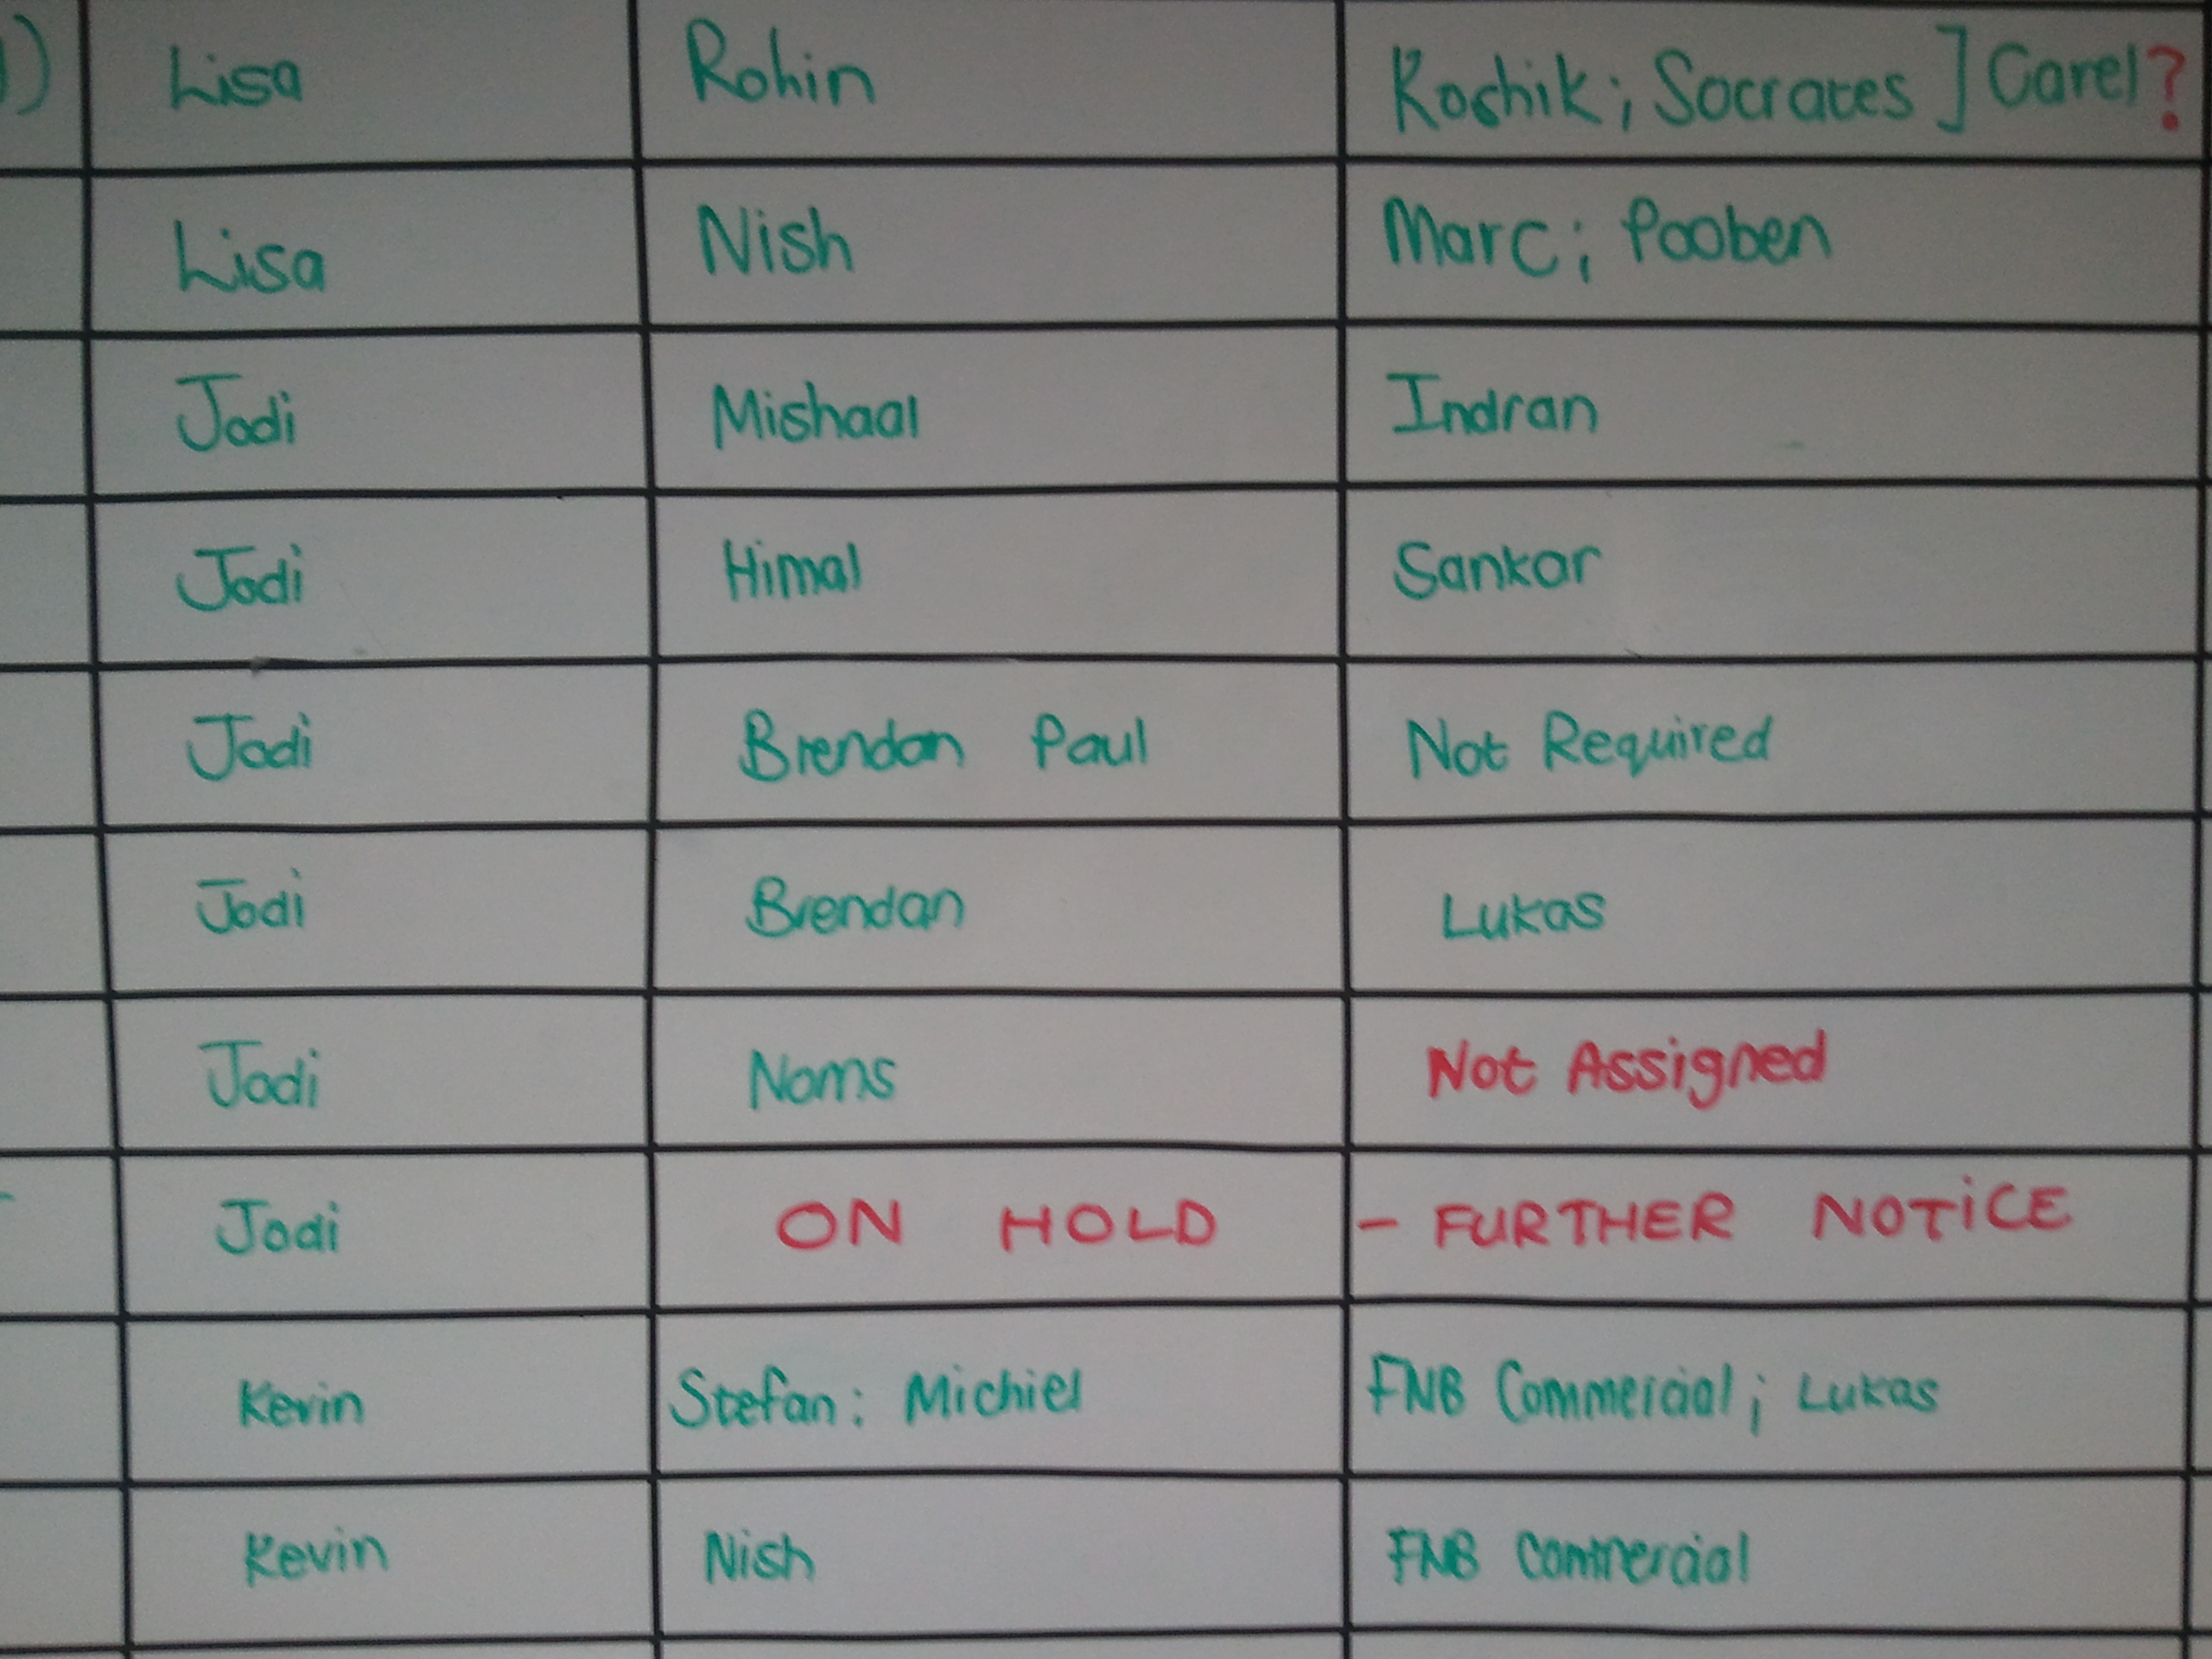 ) Lisa Rohin Koshik; Socrates ] Carel?
Lisa Nish Marc; Pooben
Jodi Mishaal Indran
Jodi Himal Sankar
Jodi Brendan Paul Not Required
Jodi Brendan Lukas
Jodi Noms Not Assigned
Jodi ON HOLD - FURTHER NOTiCE
Kevin Stefan: Michiel FNB Commercial; Lukas
Kevin Nish FNB Commercial